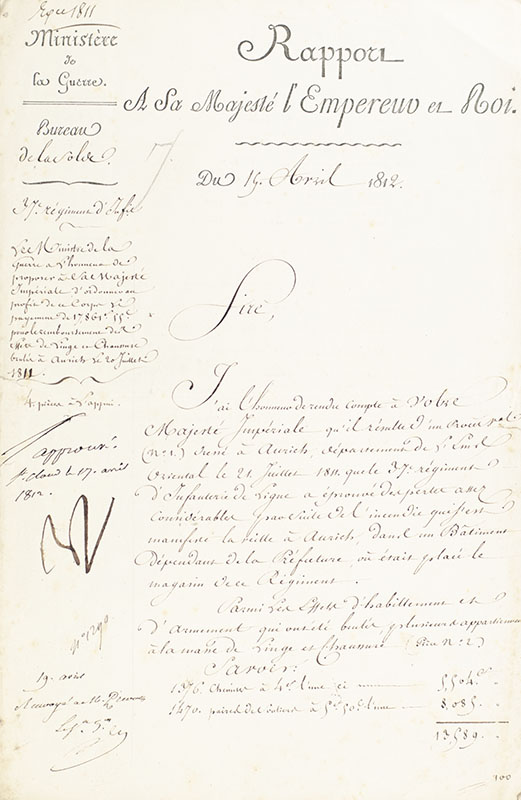 1811
Ministère
de
la Guerre.
Bureau
de la Solde.
37e. régiment d'Infie
Le Ministre de la
Guerre a l'honneur de
proposer à Sa Majesté
Impériale d'ordonner au
profit de ce Corps le
payement de
pour le remboursement des
effets de Linge et Chaussure
brulés à Aurich le 20 Juillet
1811.
4. pièces à l'appui.
approuvé
St Cloud le 17. avril
1812.
N
n° 1290
19. avril
Renvoyé au
Rapport
A Sa Majesté l'Empereur et Roi.
Du 15. Avril 1812.
Sire,
J'ai l'honneur de rendre compte à Votre
Majesté Impériale qu'il résulte d'un Procès Val
(n° 1.) dressé à Aurich, département de l'Ems
Oriental le 21 Juillet 1811. que le 37e. régiment
d'Infanterie de Ligne a éprouvé des pertes assez
considérables par suite de l'incendie qui s'est
manifesté la veille à Aurich, dans un Bâtiment
Dépendant de la Préfecture, où était placé le
magasin de ce Régiment.
Parmi les Effets d'habillement et
d'Armement qui ont été brulés plusieurs appartiennent
à la masse de Linge et Chaussure (Pièce N° 2)
Savoir:
1376 Chemises à 4f. l'une ci 5,504.
1470. paires de souliers à 5f. 50c. l'une 8,085.
13,589.
100